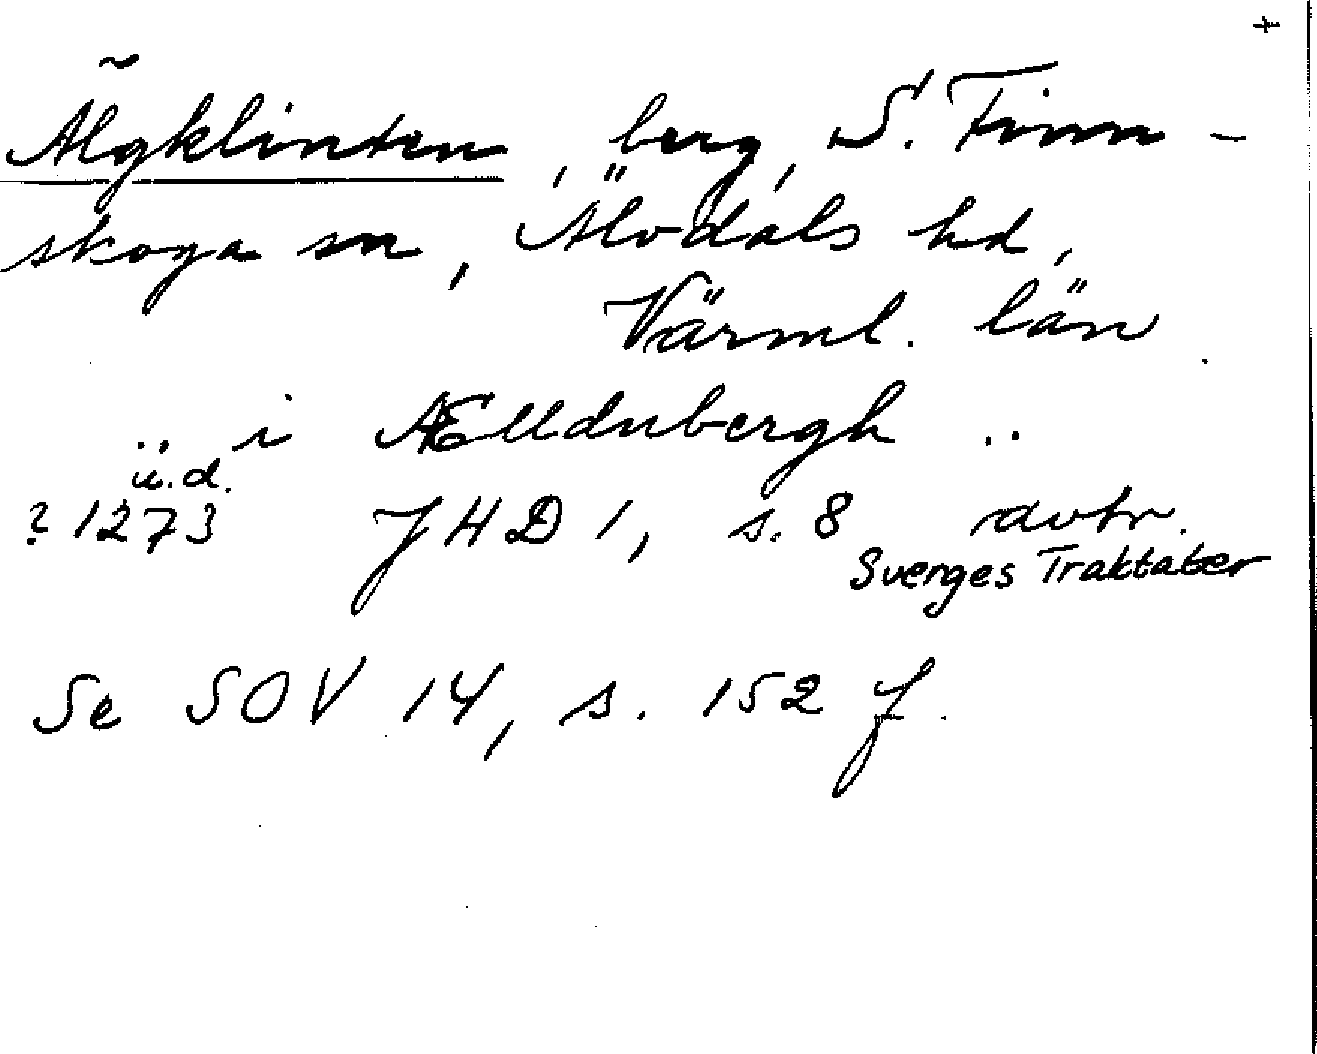 Älgklinten, berg, S. Finn-
skoga sn, Älvdals hd,
Värml. län
.. i Ælldubergh ..
u.d.
? 1273 JHD 1, s. 8 avtr.
Sverges Traktater
Se SOV 14, s. 152 f.